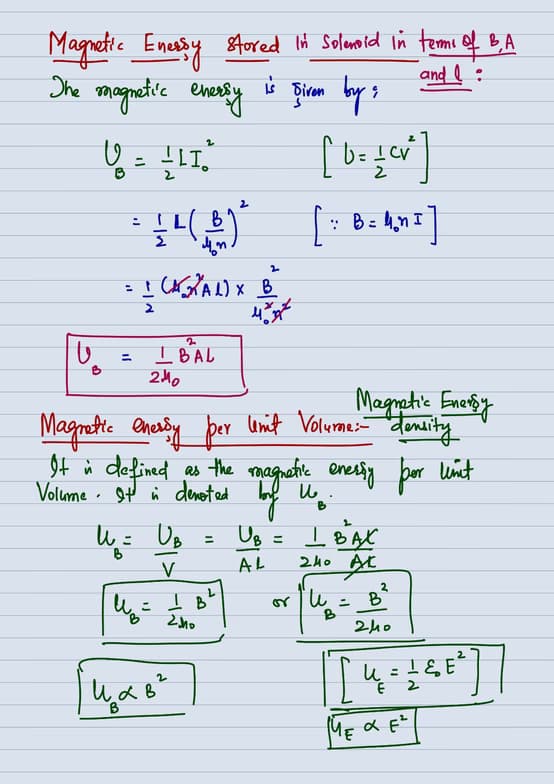 Magnetic Energy stored in Solenoid in terms of B, A
and l :
The magnetic energy is given by :
U_B = 1/2 L I_0^2 [ U = 1/2 CV^2 ]
= 1/2 L ( B / μ_0 n )^2 [ ∵ B = μ_0 n I ]
= 1/2 (μ_0 n^2 A l) × B^2 / μ_0^2 n^2
U_B = 1/2μ_0 B^2 A L
Magnetic Energy
Magnetic energy per Unit Volume:- density
It is defined as the magnetic energy per Unit
Volume. It is denoted by u_B.
u_B = U_B / V = U_B / A L = 1/2μ_0 B^2 A L / A L
u_B = 1/2μ_0 B^2 or u_B = B^2 / 2μ_0
[ u_E = 1/2 ε_0 E^2 ]
u_B ∝ B^2
u_E ∝ E^2